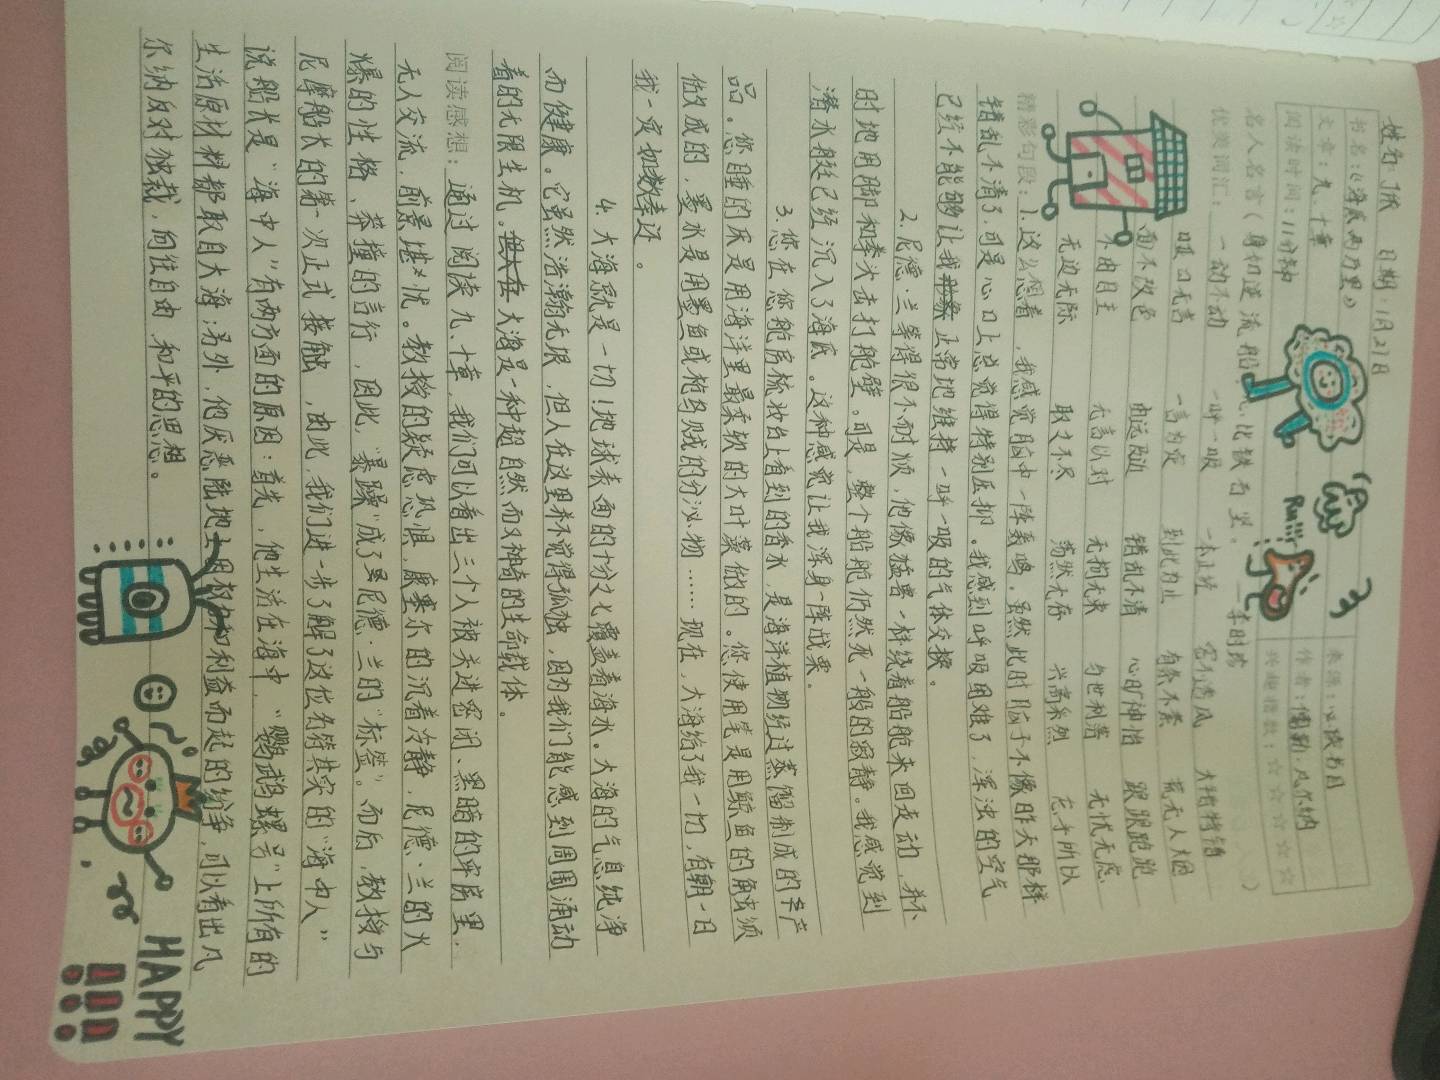 日期：1月27日
书名：《海底两万里》
来源：必读书目
文章：九、十章
作者：儒勒·凡尔纳
阅读时间：11分钟
兴趣指数：☆☆☆☆☆
名人名言（身初逆流船，心比铁石坚。
优美词汇：一动不动 一呼一吸 一本正经 大错特错
哑口无言 一言为定 到此为止 有条不紊 荒无人烟
面不改色 由远及近 错乱不清 心旷神怡 跟跟跑跑
不由自主 无言以对 无拘无束 与世利落 无忧无虑
无边无际 取之不尽 荡然无存 兴高采烈 忘乎所以
精彩句段：1.这么想着，我感觉脑中一阵轰鸣，虽然此时脑子不像昨天那样
错乱不清了，可是心口上总觉得特别压抑。我感到呼吸困难了，浑浊的空气
已经不能够让我正常地维持一呼一吸的气体交换。
2.尼德·兰等得很不耐烦，他像猛兽一样绕着船舱来回走动，并不
时地用脚和拳头击打舱壁。可是，整个船舱仍然死一般的寂静。我感觉到
潜水艇已经沉入了海底。这种感觉让我浑身一阵战栗。
3.您在您舱房梳妆台上看到的香水，是海洋植物经过蒸馏制成的产
品。您睡的床是用海洋里最柔软的大叶藻做的。您使用笔是用鲸鱼的触须
做成的，墨水是用墨鱼或枪乌贼的分泌物……现在，大海给了我一切，有朝一日
我一定如数奉还。
4.大海就是一切！地球表面的十分之七覆盖着海水。大海的气息纯净
而健康。它虽然浩瀚无垠，但人在这里并不觉得孤独，因为我们能感到周围涌动
着的无限生机。大海是一种超自然而又神奇的生命载体。
阅读感想：通过阅读九、十章，我们可以看出三个人被关进密闭、黑暗的牢房里，
无人交流，前景堪忧。教授的疑虑恐惧，康塞尔的沉着冷静，尼德·兰的火
爆的性格、莽撞的言行，因此，“暴躁”成了尼德·兰的“标签”。而后，教授与
尼摩船长的第一次正式接触，由此，我们进一步了解了这位名符其实的“海中人”
说船长是“海中人”有两方面的原因：首先，他生活在海中，“鹦鹉螺号”上所有的
生活原材料都取自大海；另外，他厌恶陆地上因权力和利益而起的纷争，可以看出凡
尔纳反对独裁，向往自由、和平的思想。
Run!!!
HAPPY